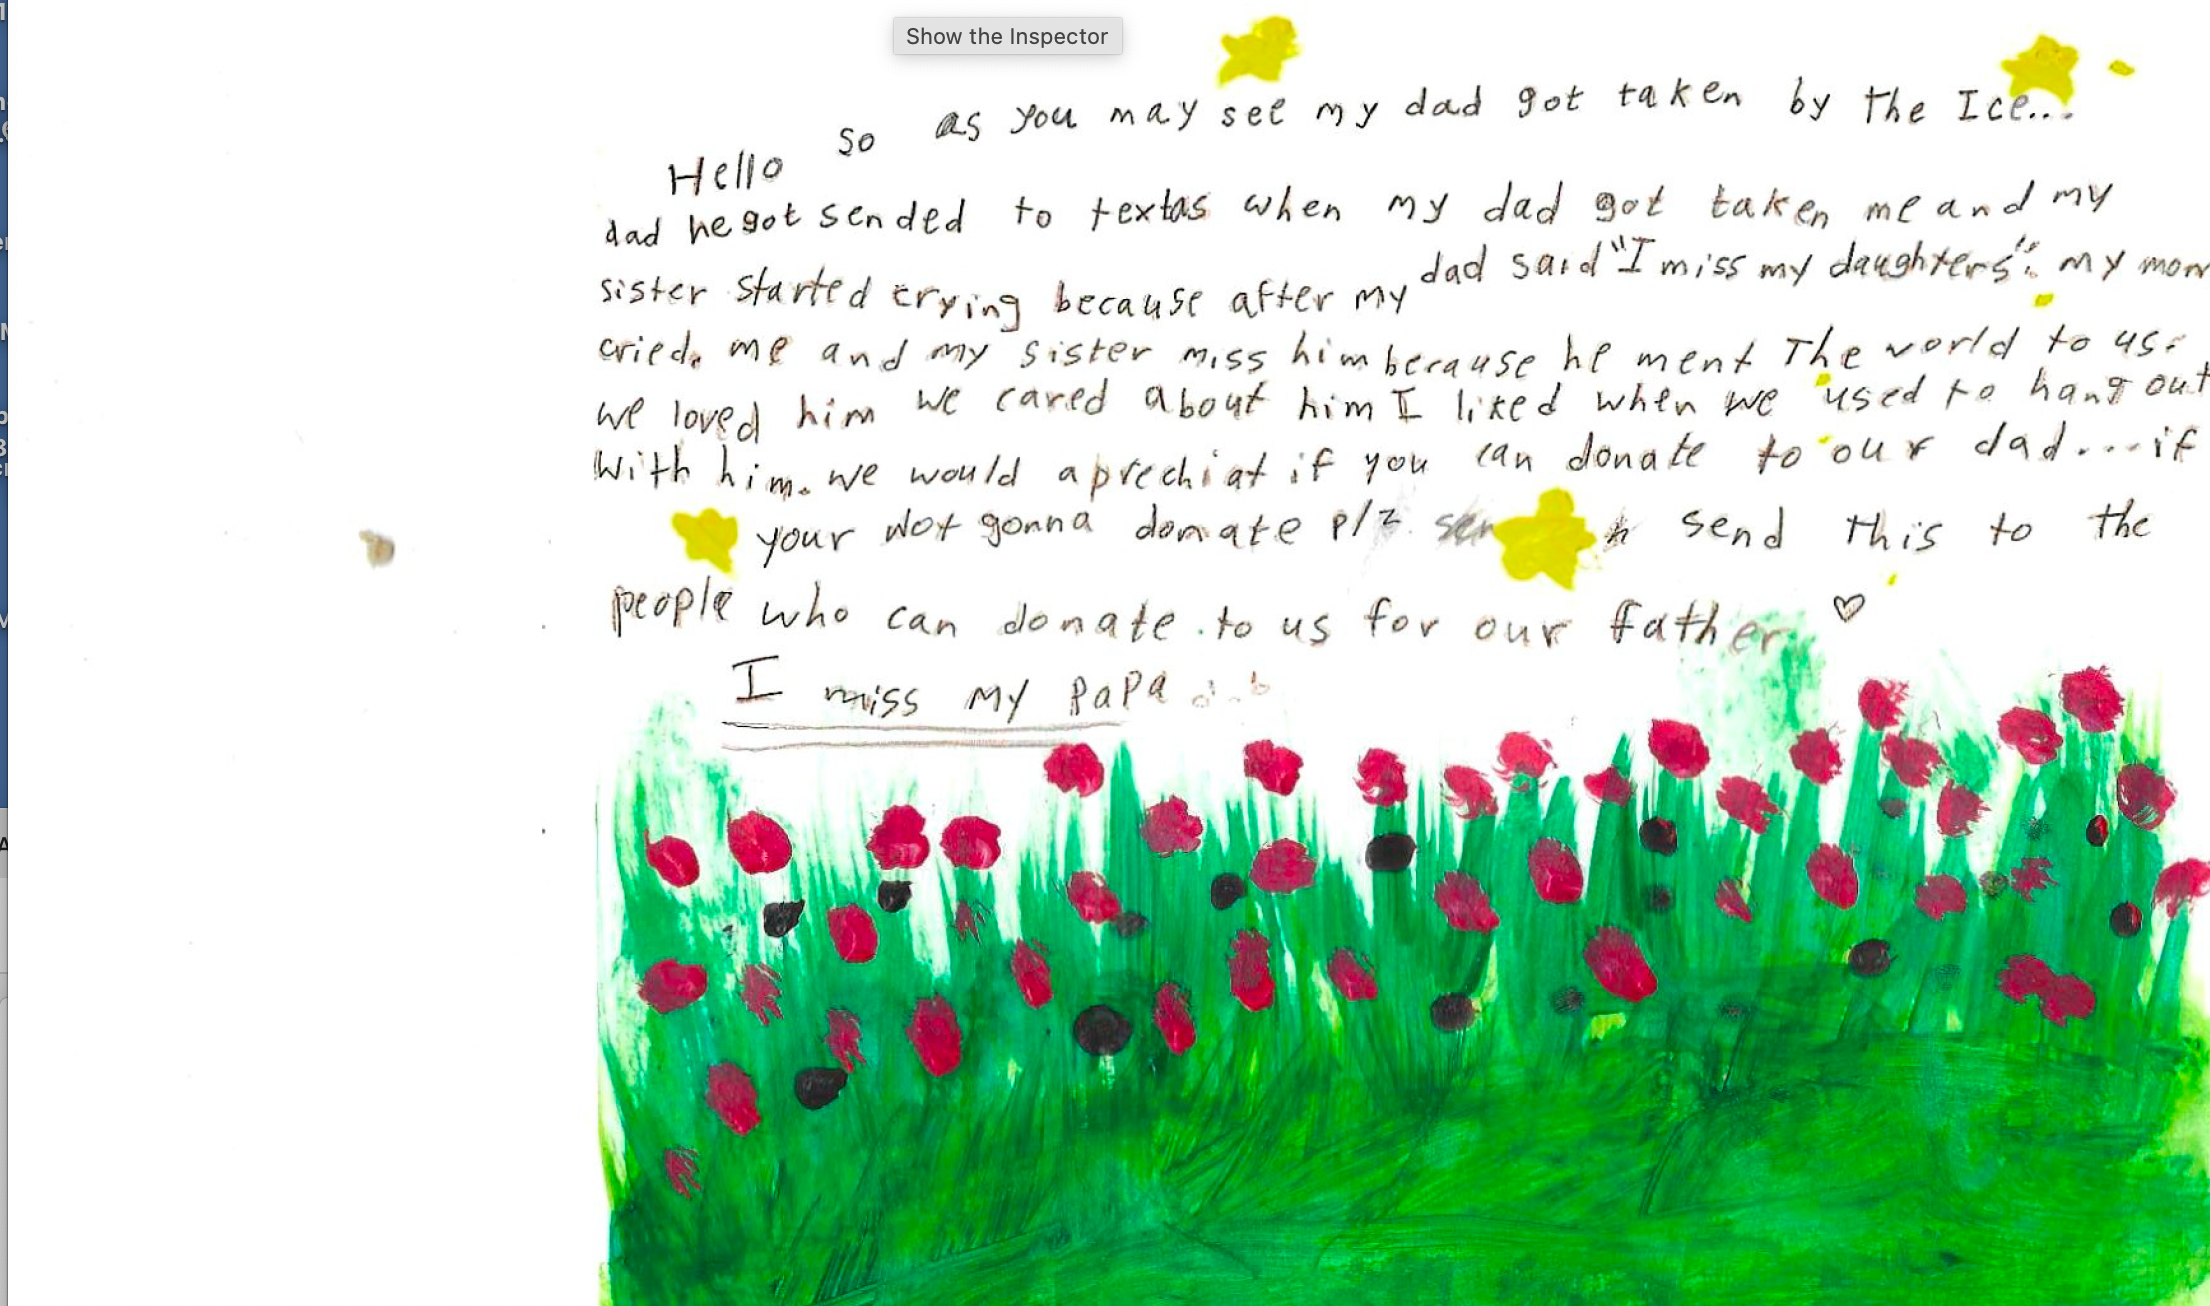 Show the Inspector
Hello so as you may see my dad got taken by the Ice...
dad he got sended to textas when my dad got taken me and my
sister started crying because after my dad said "I miss my daughters". my mom
cried. me and my sister miss him because he ment the world to us.
we loved him we cared about him I liked when we used to hang out
with him. we would aprechiat if you can donate to our dad....if
your not gonna donate plz send this to the
people who can donate to us for our father ♡
I miss my papa